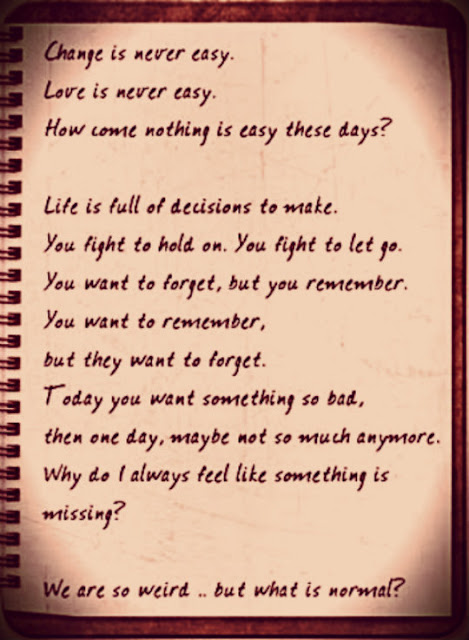 Change is never easy.
Love is never easy.
How come nothing is easy these days?
Life is full of decisions to make.
You fight to hold on. You fight to let go.
You want to forget, but you remember.
You want to remember,
but they want to forget.
Today you want something so bad,
then one day, maybe not so much anymore.
Why do I always feel like something is
missing?
We are so weird .. but what is normal?